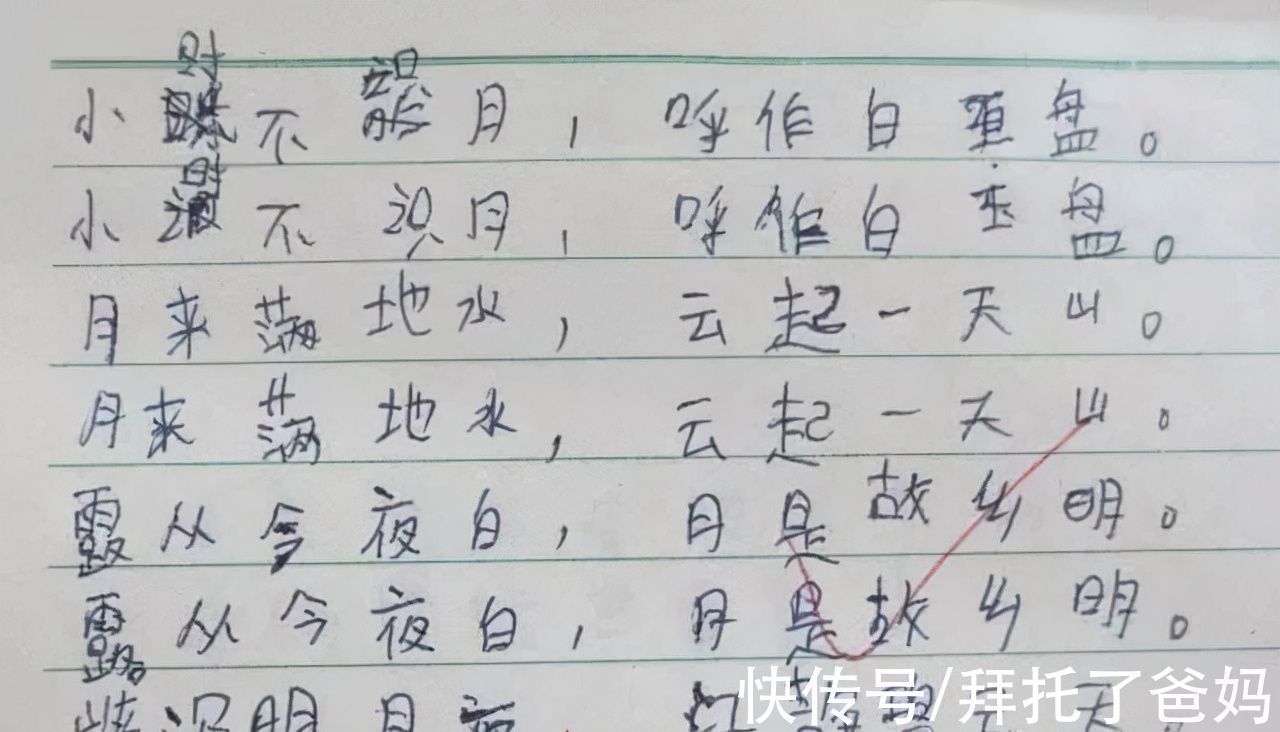 小不识月，呼作白玉盘。
小不识月，呼作白玉盘。
月来满地水，云起一天山。
月来满地水，云起一天山。
露从今夜白，月是故乡明。
露从今夜白，月是故乡明。
明月
快传号/拜托了爸妈